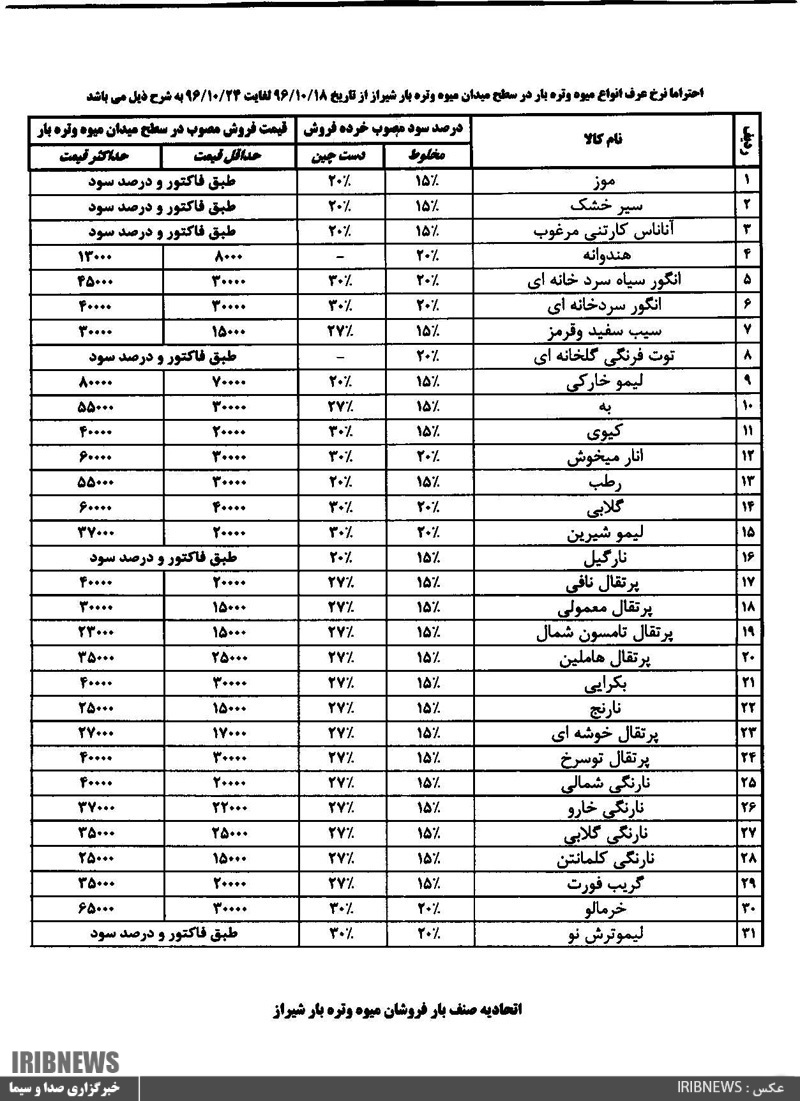 احتراما نرخ عرف انواع میوه وتره بار در سطح میدان میوه وتره بار شیراز از تاریخ ۹۶/۱۰/۱۸ لغایت ۹۶/۱۰/۲۴ به شرح ذیل می باشد
ردیف نام کالا درصد سود مصوب خرده فروش قیمت فروش مصوب در سطح میدان میوه وتره بار
مخلوط دست چین حداقل قیمت حداکثر قیمت
۱ موز ۱۵٪ ۲۰٪ طبق فاکتور و درصد سود
۲ سیر خشک ۱۵٪ ۲۰٪ طبق فاکتور و درصد سود
۳ آناناس کارتنی مرغوب ۱۵٪ ۲۰٪ طبق فاکتور و درصد سود
۴ هندوانه ۲۰٪ - ۸۰۰۰ ۱۳۰۰۰
۵ انگور سیاه سرد خانه ای ۲۰٪ ۳۰٪ ۳۰۰۰۰ ۴۵۰۰۰
۶ انگور سردخانه ای ۲۰٪ ۳۰٪ ۳۰۰۰۰ ۴۰۰۰۰
۷ سیب سفید وقرمز ۱۵٪ ۲۷٪ ۱۵۰۰۰ ۳۰۰۰۰
۸ توت فرنگی گلخانه ای ۲۰٪ - طبق فاکتور و درصد سود
۹ لیمو خارکی ۱۵٪ ۲۰٪ ۷۰۰۰۰ ۸۰۰۰۰
۱۰ به ۱۵٪ ۲۷٪ ۳۰۰۰۰ ۵۵۰۰۰
۱۱ کیوی ۱۵٪ ۳۰٪ ۲۰۰۰۰ ۴۰۰۰۰
۱۲ انار میخوش ۲۰٪ ۳۰٪ ۳۰۰۰۰ ۶۰۰۰۰
۱۳ رطب ۱۵٪ ۲۰٪ ۳۰۰۰۰ ۵۵۰۰۰
۱۴ گلابی ۲۰٪ ۳۰٪ ۴۰۰۰۰ ۶۰۰۰۰
۱۵ لیمو شیرین ۲۰٪ ۳۰٪ ۲۰۰۰۰ ۳۷۰۰۰
۱۶ نارگیل ۱۵٪ ۲۰٪ طبق فاکتور و درصد سود
۱۷ پرتقال نافی ۱۵٪ ۲۷٪ ۲۰۰۰۰ ۴۰۰۰۰
۱۸ پرتقال معمولی ۱۵٪ ۲۷٪ ۱۵۰۰۰ ۳۰۰۰۰
۱۹ پرتقال تامسون شمال ۱۵٪ ۲۷٪ ۱۵۰۰۰ ۲۳۰۰۰
۲۰ پرتقال هاملین ۱۵٪ ۲۷٪ ۲۵۰۰۰ ۳۵۰۰۰
۲۱ بکرایی ۱۵٪ ۲۷٪ ۳۰۰۰۰ ۴۰۰۰۰
۲۲ نارنج ۱۵٪ ۲۷٪ ۱۵۰۰۰ ۲۵۰۰۰
۲۳ پرتقال خوشه ای ۱۵٪ ۲۷٪ ۱۷۰۰۰ ۲۷۰۰۰
۲۴ پرتقال توسرخ ۱۵٪ ۲۷٪ ۳۰۰۰۰ ۴۰۰۰۰
۲۵ نارنگی شمالی ۱۵٪ ۲۷٪ ۲۰۰۰۰ ۴۰۰۰۰
۲۶ نارنگی خارو ۱۵٪ ۲۷٪ ۲۲۰۰۰ ۳۷۰۰۰
۲۷ نارنگی گلابی ۱۵٪ ۲۷٪ ۲۵۰۰۰ ۳۵۰۰۰
۲۸ نارنگی کلمانتن ۱۵٪ ۲۷٪ ۱۵۰۰۰ ۲۵۰۰۰
۲۹ گریب فورت ۱۵٪ ۲۷٪ ۲۰۰۰۰ ۳۵۰۰۰
۳۰ خرمالو ۲۰٪ ۳۰٪ ۳۰۰۰۰ ۶۵۰۰۰
۳۱ لیموترش نو ۲۰٪ ۳۰٪ طبق فاکتور و درصد سود
اتحادیه صنف بار فروشان میوه وتره بار شیراز
IRIBNEWS
خبرگزاری صدا و سیما
عکس : IRIBNEWS